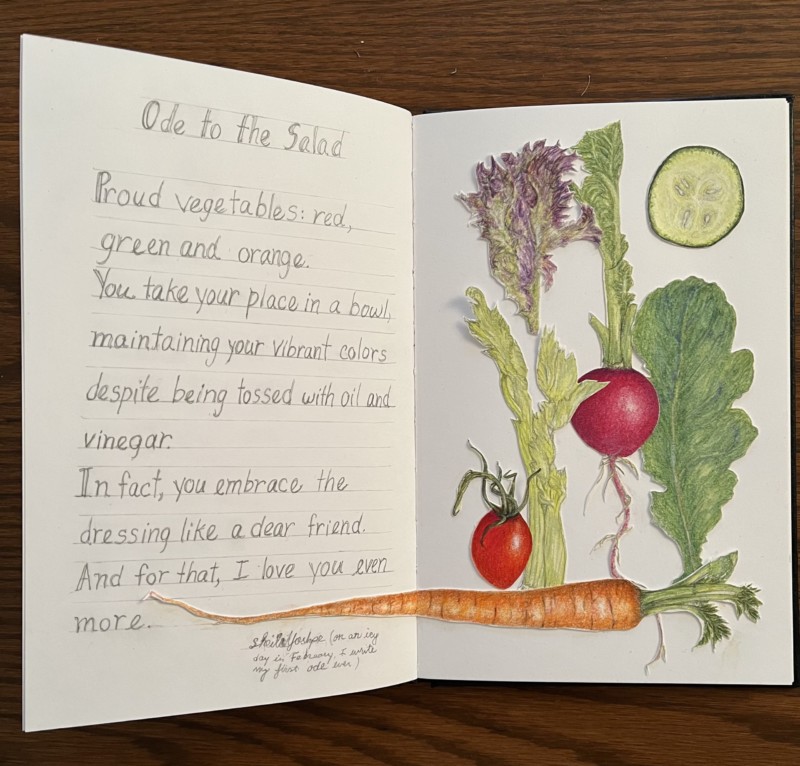 Ode to the Salad
Proud vegetables: red,
green and orange.
You take your place in a bowl,
maintaining your vibrant colors
despite being tossed with oil and
vinegar.
In fact, you embrace the
dressing like a dear friend.
And for that, I love you even
more.
(on an icy
day in February, I wrote
my first ode ever)